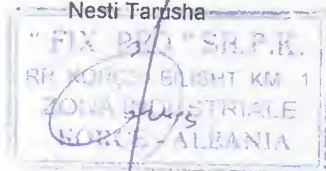 Nesti Tarusha
"FIX PRO" SH.P.K.
RR KORÇË BILISHT KM 1
ZONA INDUSTRIALE
KORÇË - ALBANIA